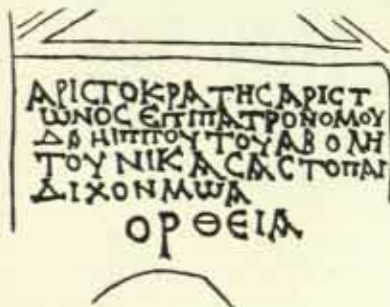 ΑΡΙϹΤΟΚΡΑΤΗϹΑΡΙϹΤ
ΩΝΟϹΕΠΙΠΑΤΡΟΝΟΜΟΥ
ΔΑΗΙΠΠΟΥΤΟΥΑΒΟΛΗ
ΤΟΥΝΙΚΑϹΑϹΤΟΠΑΙ
ΔΙΧΟΝΜѠΑ
ΟΡΘΕΙΑ